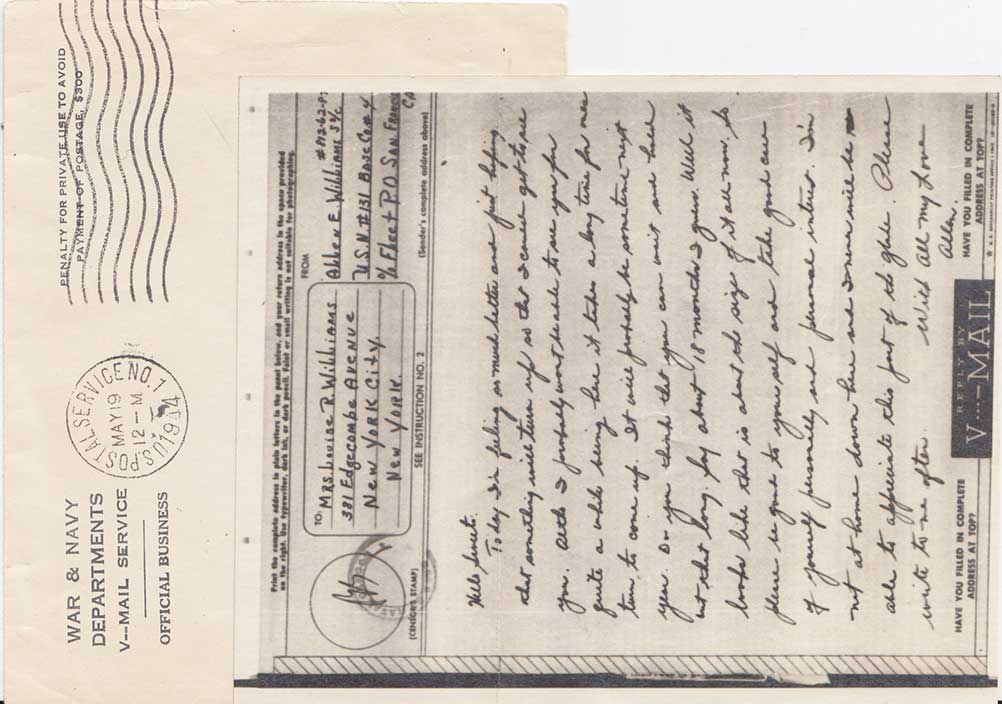 WAR & NAVY
DEPARTMENTS
V---MAIL SERVICE
OFFICIAL BUSINESS
U.S. POSTAL SERVICE NO. 1
MAY 19
12-M
1944
PENALTY FOR PRIVATE USE TO AVOID
PAYMENT OF POSTAGE, $300
Print the complete address in plain letters in the panel below, and your return address in the space provided
on the right. Use typewriter, dark ink, or dark pencil. Faint or small writing is not suitable for photographing.
TO:
MRS. Louise R. Williams
381 Edgecombe Avenue
New York City
New York.
FROM
Allen E. Williams S1/c
U.S.N #131 Base Co 4
c/o Fleet P.O. San Fran
(CENSOR'S STAMP)
SEE INSTRUCTION NO. 2
(Sender's complete address above)
Hello Sweets.
Today I'm feeling so much better and just hoping
that something will turn up so that I can get to see
you. Altho I probably wont be able to see you for
quite a while being here it takes a long time for ones
turn to come up. It will probably be sometime next
year. Do you think that you can wait and hold
out that long. Say about 18 months I guess. Well it
looks like that is about the size of it all now, so
please be good to yourself and take good care
of yourself personally and personal interest. I'm
not at home down here and I never will be
able to appreciate this part of the globe. Please
write to me often.
With All my Love
Allen.
HAVE YOU FILLED IN COMPLETE
ADDRESS AT TOP?
REPLY BY
V---MAIL
HAVE YOU FILLED IN COMPLETE
ADDRESS AT TOP?